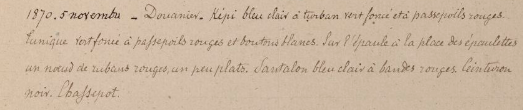 1870. 5 novembre _ Douanier. Képi bleu clair à turban vert foncé et à passepoils rouges.
Tunique vert foncé à passepoils rouges et boutons blancs. Sur l'épaule à la place des épaulettes
un nœud de rubans rouges, un peu plats. Pantalon bleu clair à bandes rouges. Ceinturon
noir. Chassepot.